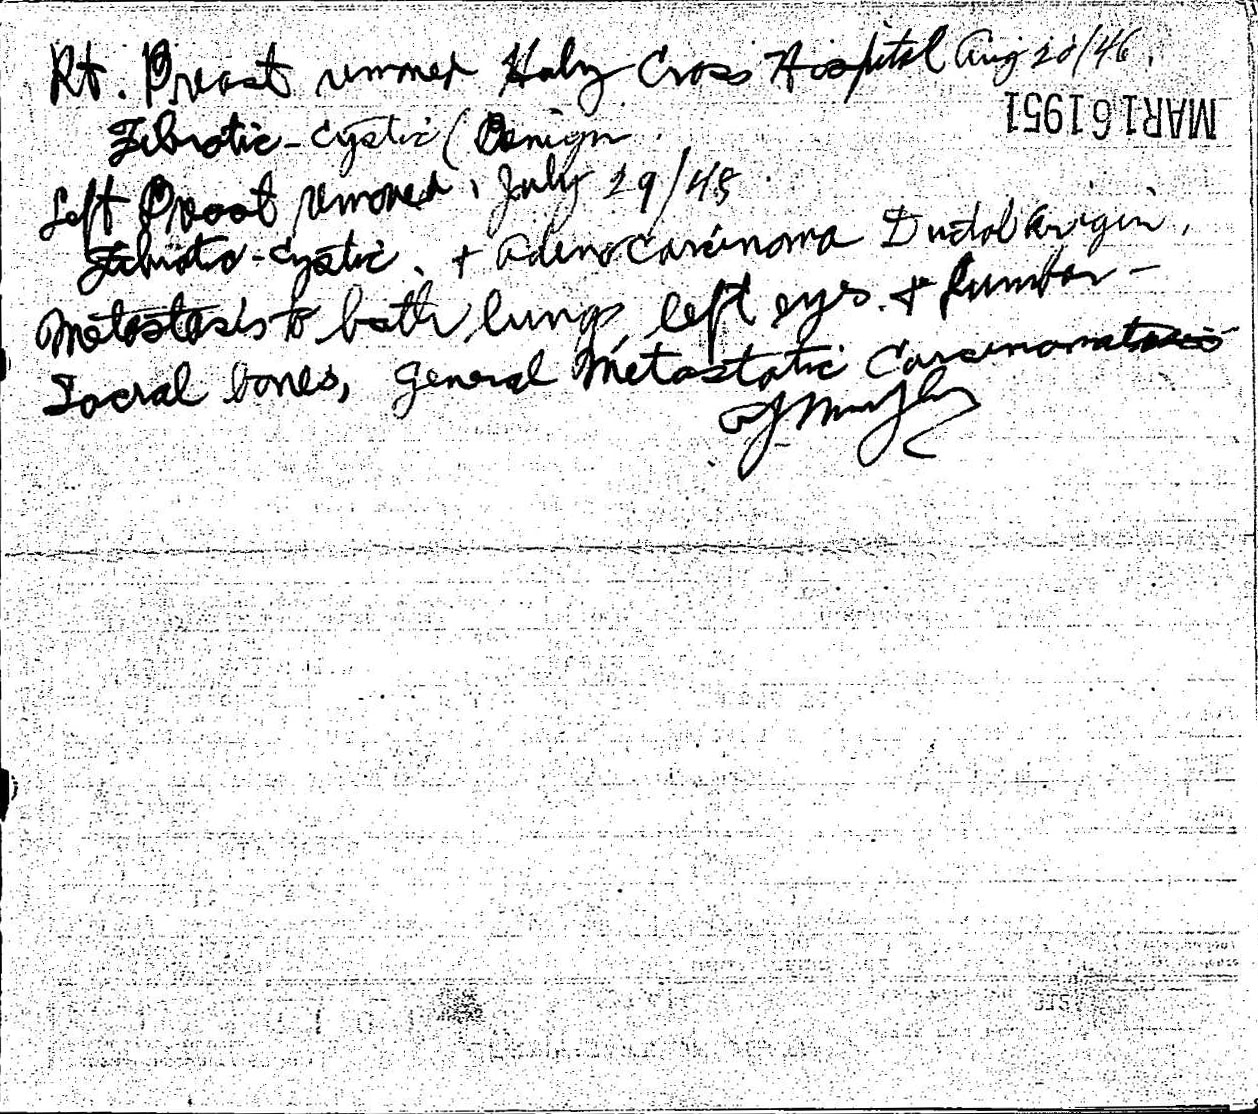 Rt. Breast removed Holy Cross Hospital Aug 20/46.
MAR 16 1951
Fibrotic-cystic (Benign
Left Breast removed, July 29/48
fibrotic-cystic. + adenocarcinoma Ductal origin.
Metastasis to both lungs left eye. & lumbar-
Sacral bones, general metastatic Carcinomatosis